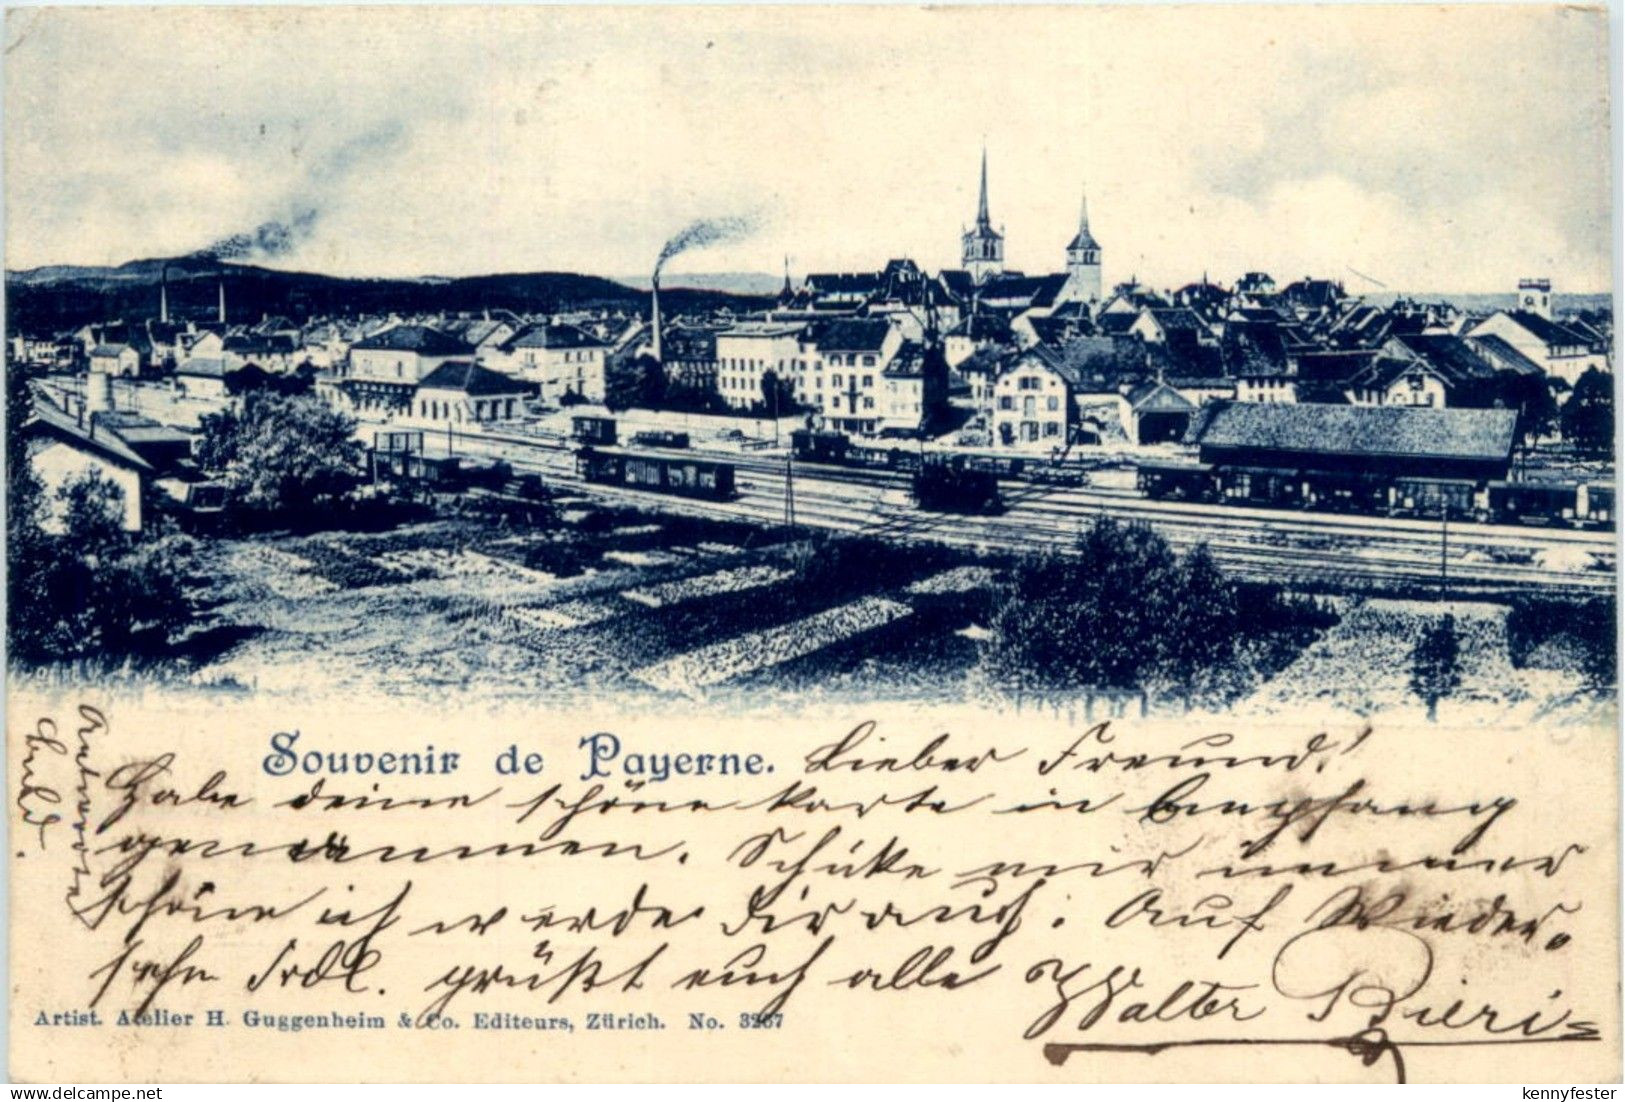 Souvenir de Payerne. Lieber Freund!
Habe deine schöne Karte in Empfang
genommen. Schicke mir immer
schöne ich werde Dir auch. Auf Wieder-
sehn Frdl. grüßt euch alle Walter Bieri
Artist. Atelier H. Guggenheim & Co. Editeurs, Zürich. No. 3267
Antworte
bald.
Delcampe.net
kennyfester